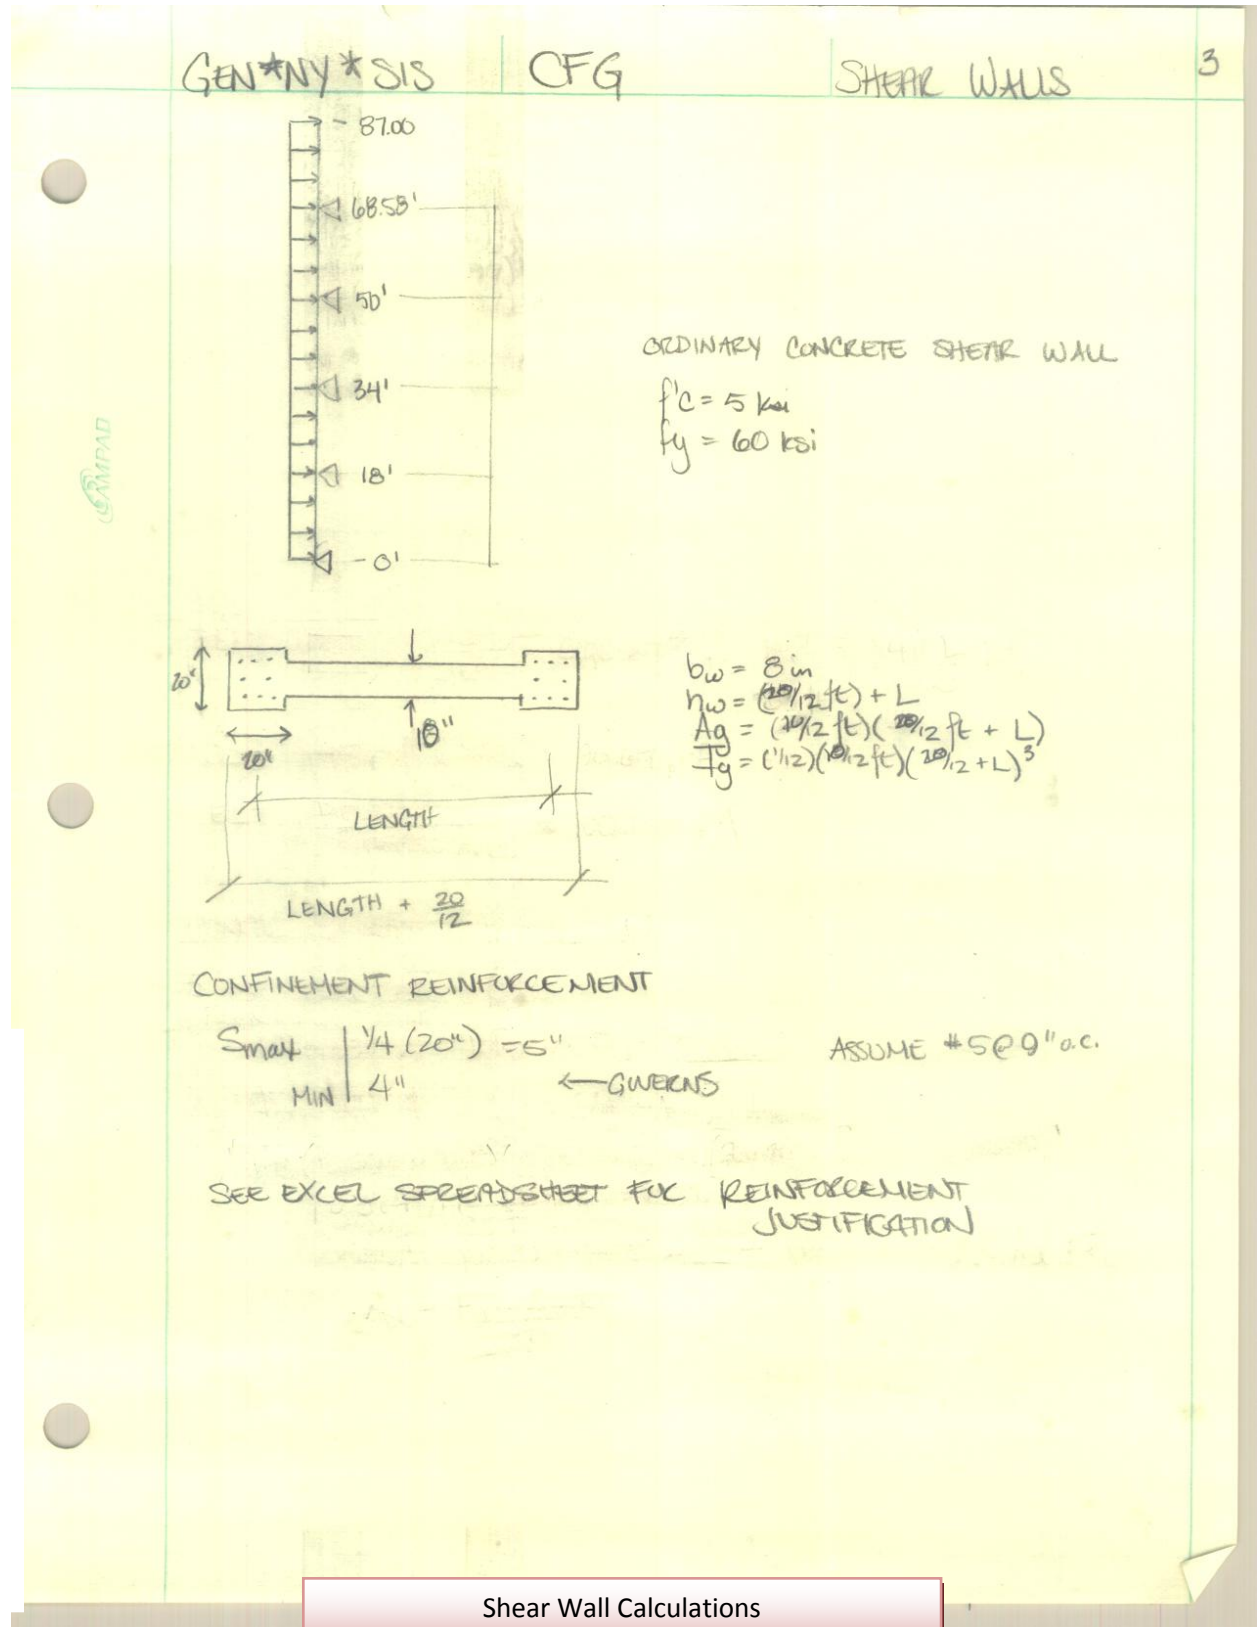 GEN*NY*SIS CFG SHEAR WALLS 3
87.00
68.58'
50'
34'
18'
0'
ORDINARY CONCRETE SHEAR WALL
f'c = 5 ksi
fy = 60 ksi
AMPAD
20"
20"
18"
LENGTH
LENGTH + 20/12
bw = 8 in
hw = (20/12 ft) + L
Ag = ( /12 ft)(20/12 ft + L)
Ig = (1/12)( /12 ft)(20/12 + L)³
CONFINEMENT REINFORCEMENT
Smax 1/4 (20") = 5"
MIN 4" ← GOVERNS
ASSUME #5@9" o.c.
SEE EXCEL SPREADSHEET FOR REINFORCEMENT
JUSTIFICATION
Shear Wall Calculations